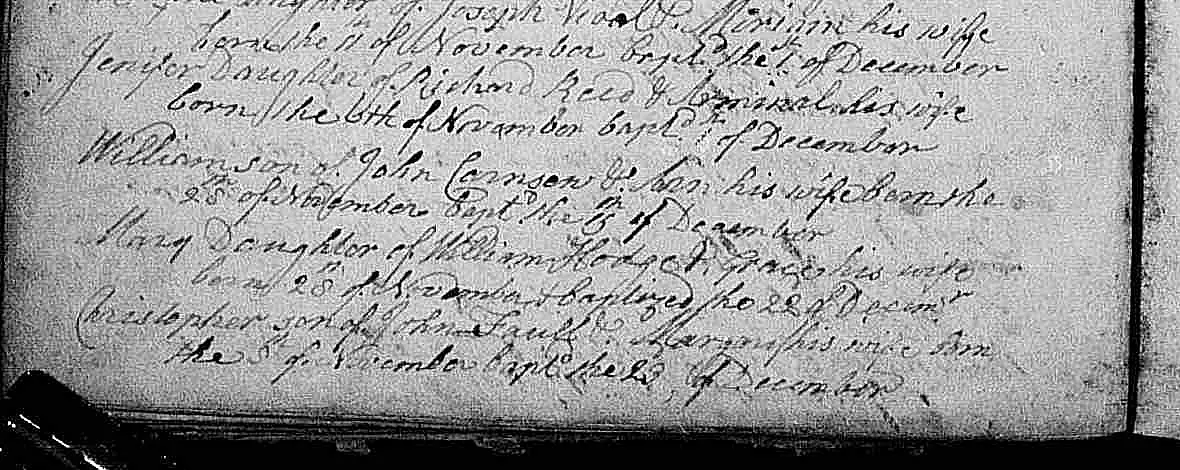 daughter of Joseph Vial & his wife
born the 11 of November bapt.d the 1st of December
Jenifer Daughter of Richard Reed & Arminal his wife
born the 6th of November bapt.d of December
William son of John Cornsew & Ann his wife born the
28th of November bapt.d the of December
Mary Daughter of William Hodge & Grace his wife
born 28th of November & baptized the 22d Decem.r
Christopher son of John Faull & his wife born
the 8th of November bapt.d the of December